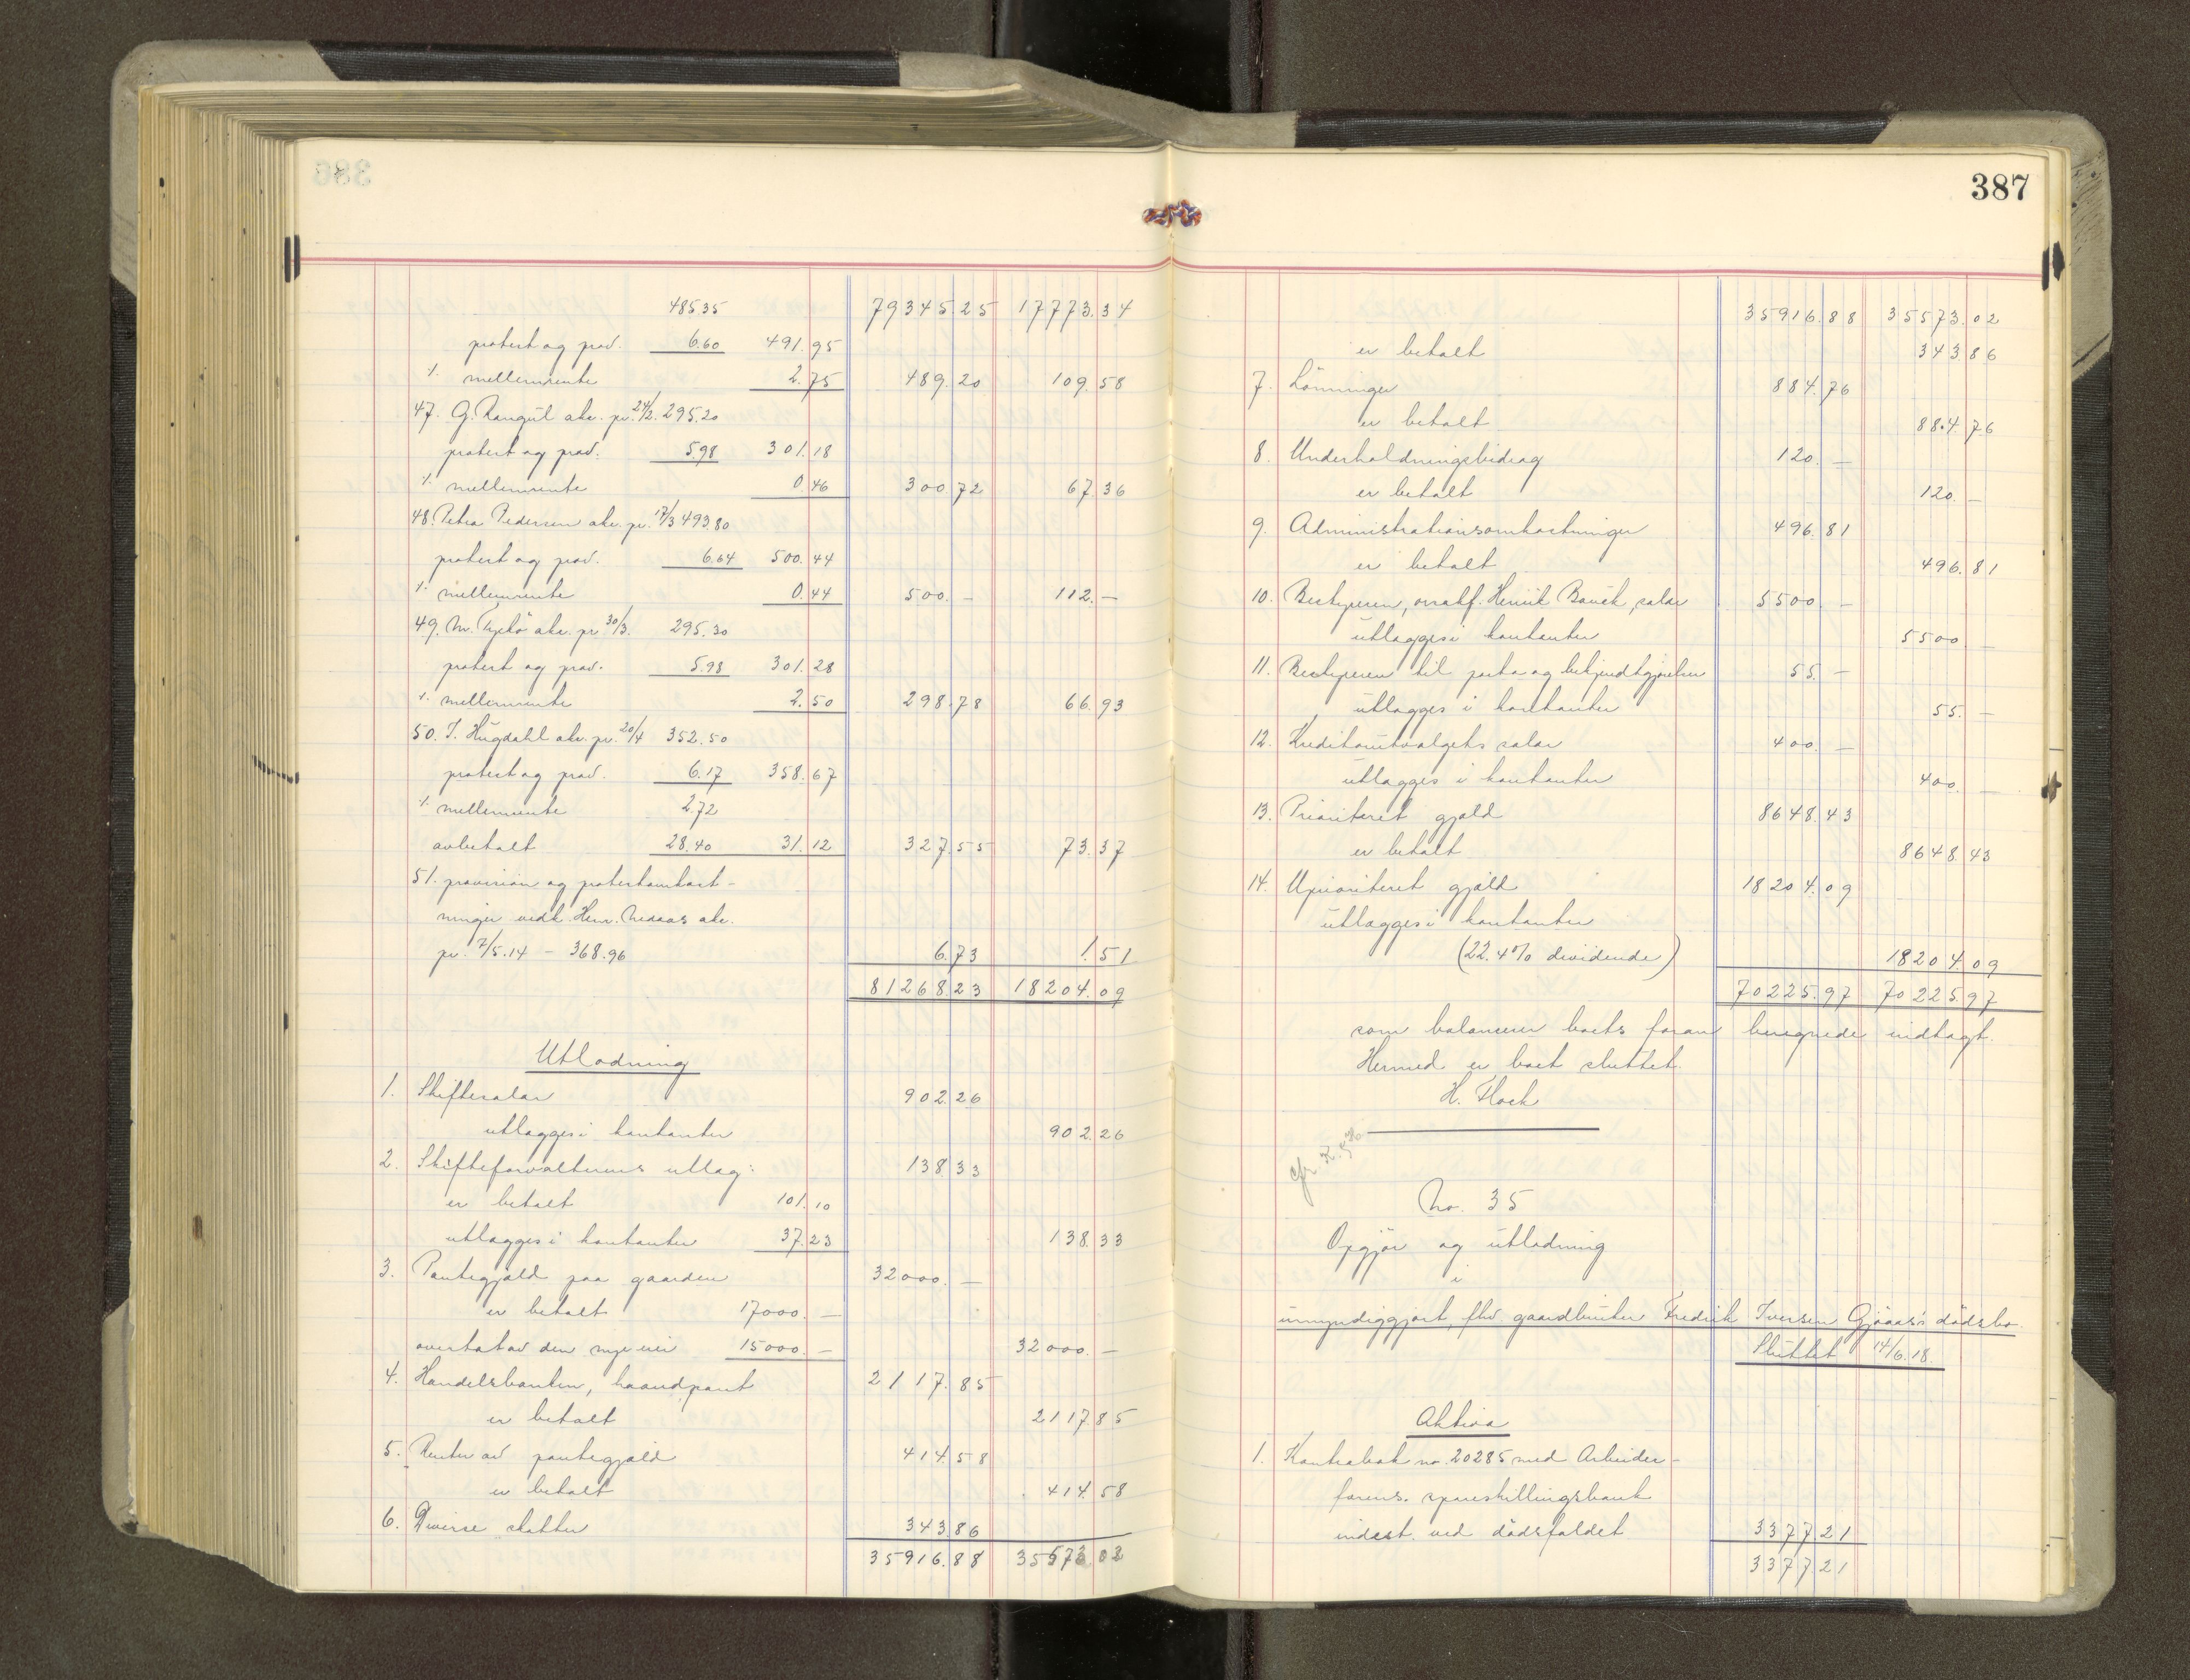 485.35 79345.25 17773.34
protest og prov. 6.60 491.95
÷ mellemrente 2.75 489.20 109.58
47. G. Rangul akc. pr. 24/2. 295.20
protest og prov. 5.98 301.18
÷ mellemrente 0.46 300.72 67.36
48. Petra Pedersen akc. pr. 17/3 493.80
protest og prov. 6.64 500.44
÷ mellemrente 0.44 500.— 112.—
49. M. akc. pr. 30/3. 295.30
protest og prov. 5.98 301.28
÷ mellemrente 2.50 298.78 66.93
50. J. Hugdahl akc. pr. 20/4 352.50
protest og prov. 6.17 358.67
÷ mellemrente 2.72
avbetalt 28.40 31.12 327.55 73.37
51. provision og protestomkost-
ninger vedk. Henr. akc.
pr. 7/5.14 – 368.96 6.73 1.51
81268.23 18204.09
Utlodning
1. Skiftesalar 902.26
utlægges i kontanter 902.26
2. Skifteforvalterens utlæg: 138.33
er betalt 101.10
utlægges i kontanter 37.23 138.33
3. Pantegjæld paa gaarden 32000.—
er betalt 17000.—
overtat av den nye eier 15000.— 32000.—
4. Handelsbanken, haandpant 2117.85
er betalt 2117.85
5. Renter av pantegjæld 414.58
er betalt 414.58
6. Diverse skatter 343.86
35916.88 35573.02
387
35916.88 35573.02
er betalt 343.86
7. Lönninger 884.76
er betalt 884.76
8. Underholdningsbidrag 120.—
er betalt 120.—
9. Administrationsomkostninger 496.81
er betalt 496.81
10. Bestyreren, orsakf. Henrik salar 5500.—
utlægges i kontanter 5500.—
11. Bestyreren til porto og bekjendtgjörelser 55.—
utlægges i kontanter 55.—
12. Kreditorutvalgets salar 400.—
utlægges i kontanter 400.—
13. Prioritert gjæld 8648.43
er betalt 8648.43
14. Uprioritert gjæld 18204.09
utlægges i kontanter
(22.4% dividende) 18204.09
70225.97 70225.97
som balancerer boets foran beregnede indtægt.
Hermed er boet sluttet.
H. Flock
No. 35
Opgjör og utlodning
i
umyndiggjort, fhv. gaardbruker Fredrik Iversen Gjöaas's dödsbo.
Sluttet 14/6.18.
Aktiva
1. Kontrabok no. 20285 med Arbeider-
foren. spareskillingsbank
indest. ved dödsfaldet 3377.21
3377.21